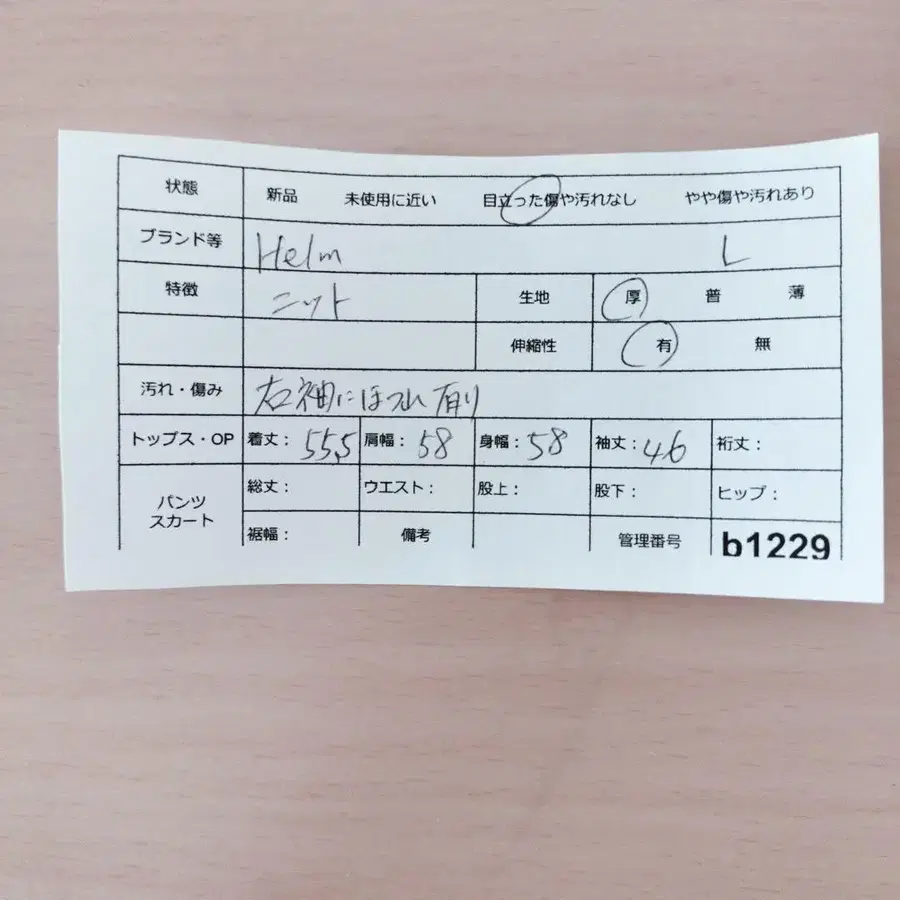 状態 新品 未使用に近い 目立った傷や汚れなし やや傷や汚れあり
ブランド等 Helm L
特徴 ニット 生地 厚 普 薄
伸縮性 有 無
汚れ・傷み 右袖にほつれ有り
トップス・OP 着丈: 55.5 肩幅: 58 身幅: 58 袖丈: 46 裄丈:
パンツ スカート 総丈: ウエスト: 股上: 股下: ヒップ:
裾幅: 備考 管理番号 b1229